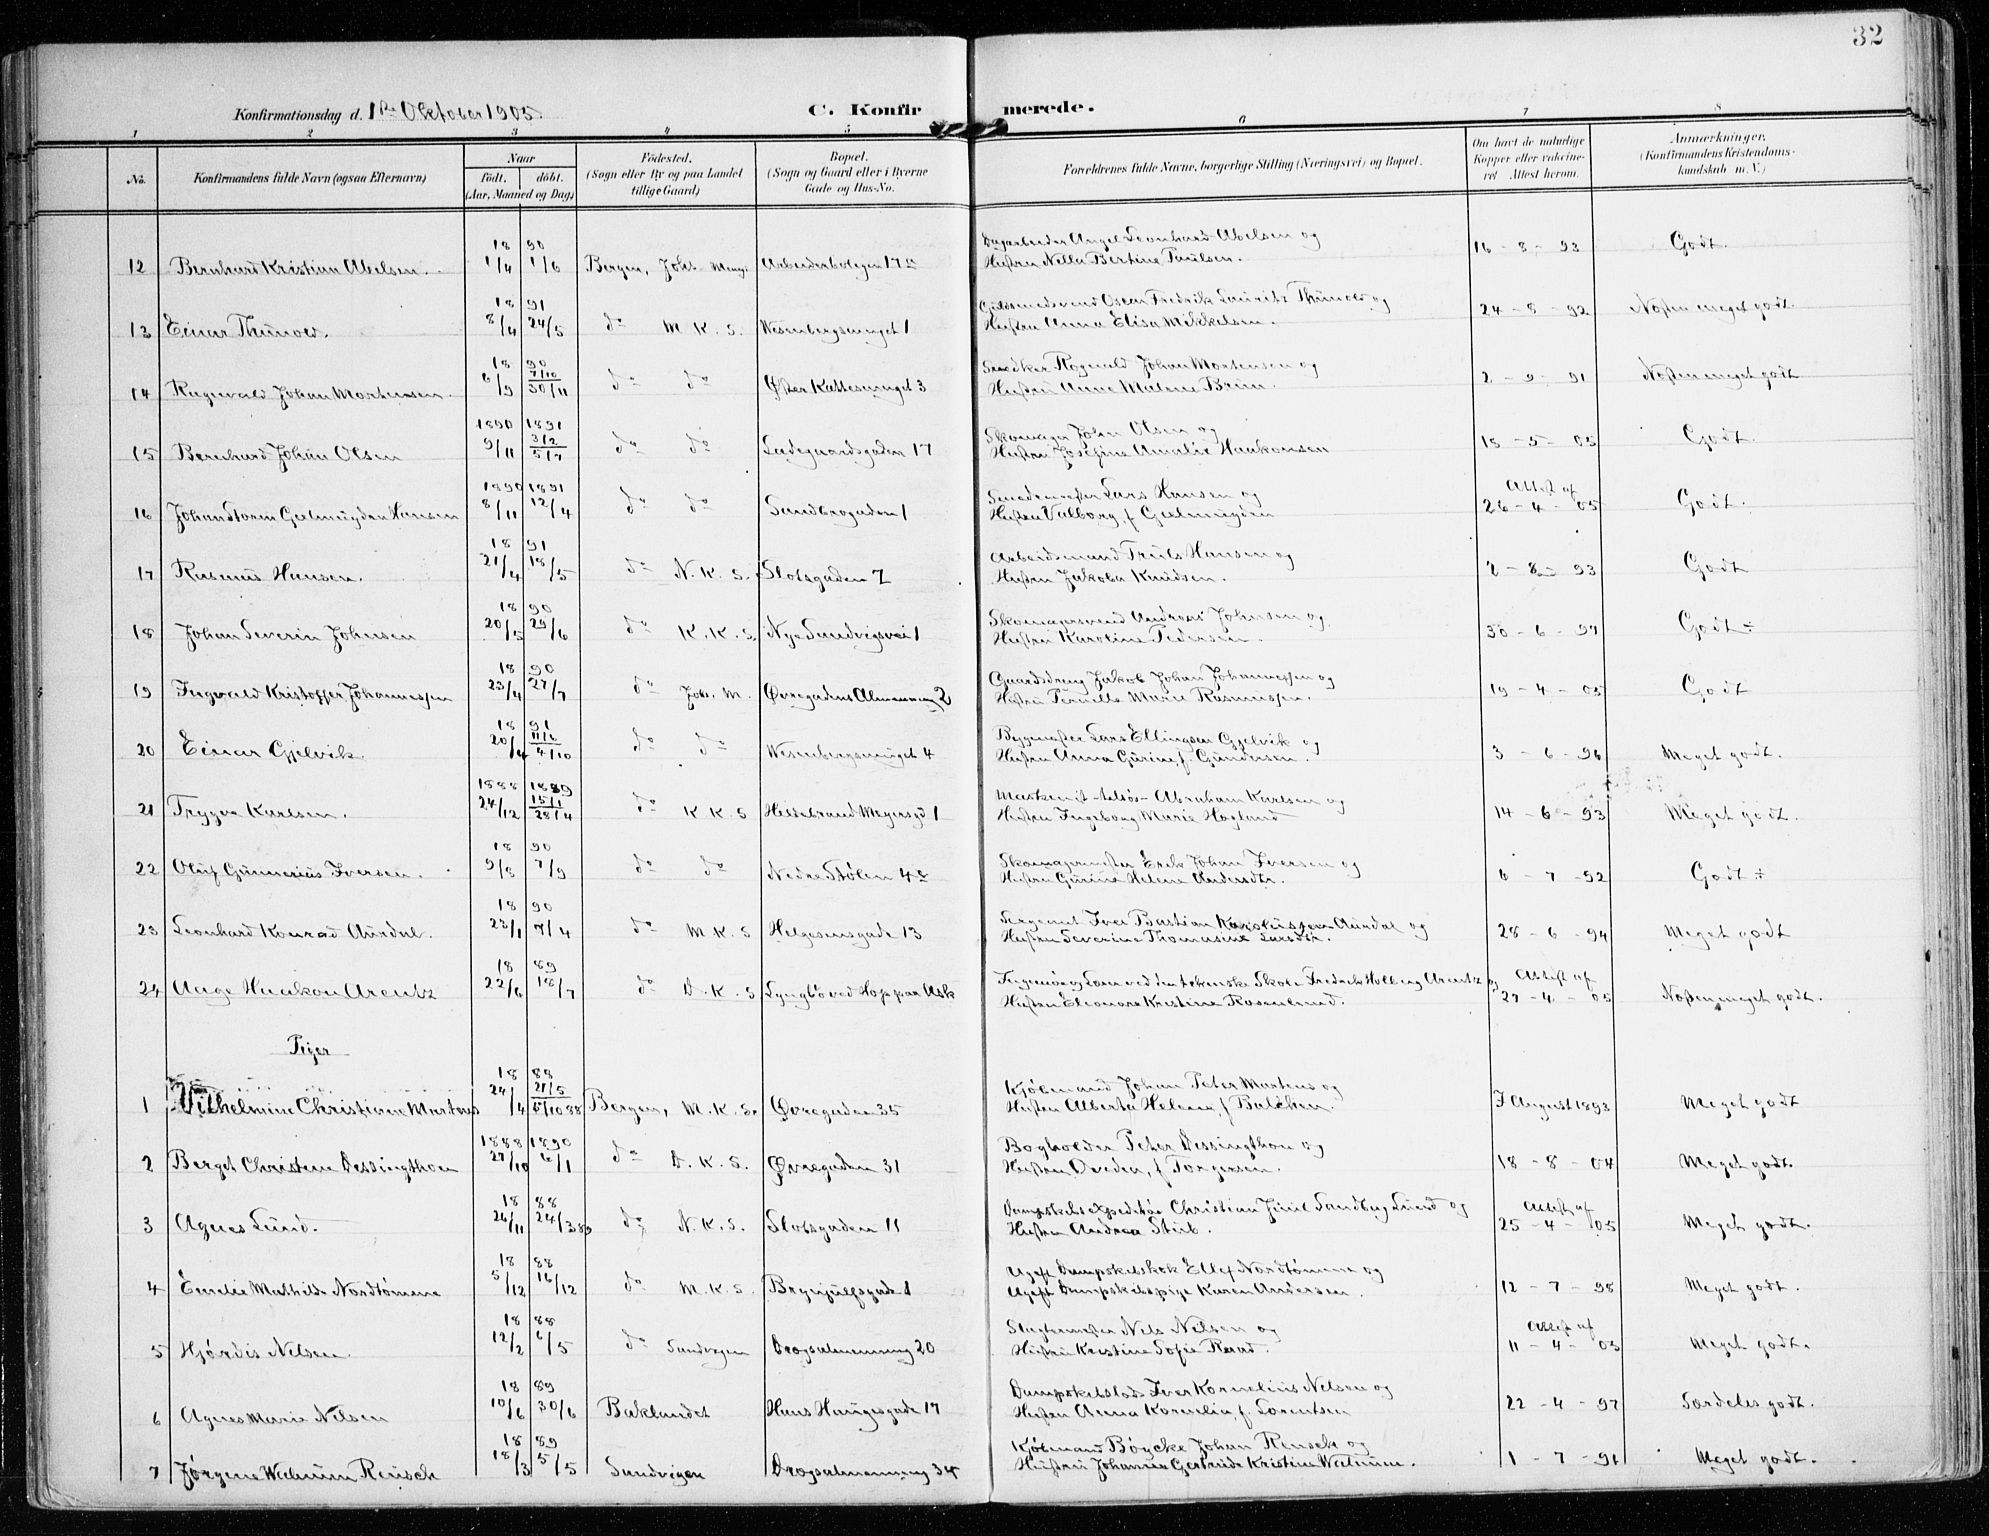 32
Konfirmationsdag d. 1ste Oktober 1905.
C. Konfirmerede.
1 2 3 4 5 6 7 8
No. Konfirmandens fulde Navn (ogsaa Efternavn) Naar født. døbt. (Aar, Maaned og Dag) Fødested. (Sogn eller By og paa Landet tillige Gaard) Bopæl. (Sogn og Gaard eller i Byerne Gade og Hus-No. Forældrenes fulde Navne, borgerlige Stilling (Næringsvei) og Bopæl. Om havt de naturlige Kopper eller vakcineret. Attest herom. Anmærkninger. (Konfirmandens Kristendomskundskab m. V.)
18 90 Dagarbeider Angel Leonhard Abelsen og
12 Bernhard Kristian Abelsen. 1/4 1/6 Bergen, Johs Meng. Arbeiderboligen 17 Hustru Nella Bertine Paulsen. 16-8-93 Godt.
18 91 Guldsmedsvend Oscar Fredrik Laurits Thunold og
13 Einar Thunold. 8/4 24/5 do M. K. S. Wesenbergsmuget 1 Hustru Anna Elisa Mikkelsen. 24-8-92 Næsten meget godt.
18 90 7/10 Snedker Rognald Johan Mortensen og
14 Ragnvald Johan Mortensen. 6/9 30/11 do do Østre Kattesmuget 3 Hustru Anne Malene Brun. 2-9-91 Næsten meget godt
1890 1891 3/2 Skomager John Olsen og
15 Bernhard Johan Olsen 9/11 5/7 do do Ladegaardsgaden 17 Hustru Josefine Amalie Haakonsen 18-5-05 Godt.
1890 1891 Smedemester Lars Hansen og Attest af
16 Johan Storm Geelmuyden Hansen 8/11 12/4 do do Sandbrogaden 1 Hustru Valborg f. Geelmuyden 26-4-05 Godt.
18 91 Arbeidsmand Truls Hansen og
17 Rasmus Hansen. 21/4 18/5 do N. K. S. Slotsgaden 7 Hustru Jakoba Knudsen. 2-8-93 Godt
18 90 Skomagersvend Andreas Johnsen og
18 Johan Severin Johnsen 20/5 29/6 do K. K. S. Nye Sandvigsvei 1 Hustru Karoline Pedersen. 30-6-97 Godt ÷
18 90 Gaardsdreng Jakob Johan Johannessen og
19 Ingvald Kristoffer Johannessen 23/4 27/7 do Johs. M. Øvregadens Almenning 2 Hustru Pernella Marie Rasmussen. 19-4-05 Godt
18 91 11/6 Bygmester Lars Ellingsen Gjelvik og
20 Einar Gjelvik. 20/4 4/10 do do Wesenbergsmuget 4 Hustru Anna Gurine, f. Gundersen. 3-6-96 Meget godt.
1888 1889 15/1 Maskenist tilsøs Abraham Karlsen og
21 Trygve Karlsen. 24/12 28/4 do K. K. S Hildebrand Meyersgd 1 Hustru Ingeborg Marie Hogland 14-6-93 Meget godt.
18 90 Skomagermester Erik Johan Iversen og
22 Oluf Gunnerius Iversen. 9/8 7/9 do do Nedre Stølen 4c Hustru Gurine Helene Andersdtr. 6-7-92 Godt ÷
18 90 Sergeant Iver Bastian Karolussen Aurdal og
23 Leonhard Konrad Aurdal. 23/1 7/4 do M. K. S Helgesensgade 13 Hustru Severine Thomasine Larsdtr. 28-6-94 Meget godt
18 89 Ingeniør og Lærer ved den tekniske Skole Fredrik Holberg Arentz og Attest af
24 Aage Haakon Arentz 22/6 18/7 do D. K. S Lyngbø ved Hop paa Ask Hustru Eleonora Kristine Rosenlund. 27-4-05 Næsten meget godt.
Piger
18 88 21/5 Kjøbmand Johan Peter Martens og
1 Vilhelmine Christiane Martens 24/4 5/10 88 Bergen, M. K. S. Øvregaden 35 Hustru Alberta Helene, f. Balchen. 7 August 1893 Meget godt
1888 1890 Bogholder Peter Dessingthon og
2 Berget Christene Dessingthon 27/10 6/1 do D. K. S. Øvregaden 31 Hustru Dreden, f. Torgersen. 18-8-04 Meget godt.
18 88 Dampskibsexpeditør Christian Juul Sandberg Lund og Attest af
3 Agnes Lund. 26/11 24/3 89 do N. K. S. Slotsgaden 11 Hustru Andrea Stub. 25-4-05 Meget godt.
18 88 Ugift Dampskibskok Ellef Nordtømme og
4 Emelie Mathilde Nordtømme 5/12 16/12 do M. K. S. Brynjulfsgade 1 Ugift Dampskibspige Karen Andersen. 12-7-98 Meget godt.
18 88 Slagtermester Nels Nelsen og Attest af
5 Hjørdis Nelsen. 12/2 6/5 do Sandvigen Dregsalmenning 20 Hustru Kristine Sofie Raad. 11-4-03 Meget godt.
18 89 Dampskibslods Iver Kornelius Nelsen og
6 Agnes Marie Nelsen 10/6 30/6 Baklandet Hans Haugesgade 17 Hustru Anna Kornelia, f. Lorentsen 22-4-97 Særdeles godt.
18 89 Kjøbmand Bøycke Johan Reusch og
7 Jørgine Walnum Reusch 18/3 5/5 Sandvigen Dregsalmenning 34 Hustru Johanna Gertrude Kristine Walnum. 1-7-91 Meget godt.